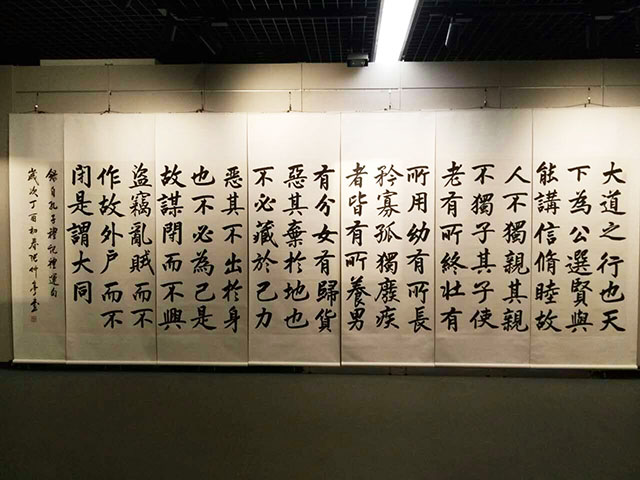 大道之行也天
下為公選賢與
能講信脩睦故
人不獨親其親
不獨子其子使
老有所終壯有
所用幼有所長
矜寡孤獨廢疾
者皆有所養男
有分女有歸貨
惡其棄於地也
不必藏於己力
惡其不出於身
也不必為己是
故謀閉而不興
盜竊亂賊而不
作故外戶而不
閉是謂大同
錄自孔子禮記禮運
歲次丁酉初春